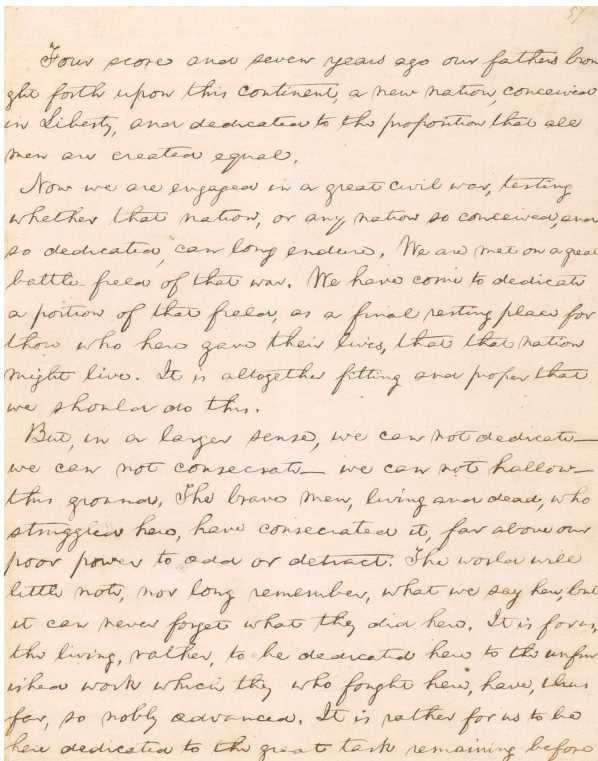 57
Four score and seven years ago our fathers brou
ght forth upon this continent, a new nation, conceived
in Liberty, and dedicated to the proposition that all
men are created equal.
Now we are engaged in a great civil war, testing
whether that nation, or any nation so conceived, and
so dedicated, can long endure. We are met on a great
battle-field of that war. We have come to dedicate
a portion of that field, as a final resting place for
those who here gave their lives, that that nation
might live. It is altogether fitting and proper that
we should do this.
But, in a larger sense, we can not dedicate—
we can not consecrate— we can not hallow—
this ground. The brave men, living and dead, who
struggled here, have consecrated it, far above our
poor power to add or detract. The world will
little note, nor long remember, what we say here, but
it can never forget what they did here. It is for us,
the living, rather, to be dedicated here to the unfin
ished work which they who fought here, have, thus
far, so nobly advanced. It is rather for us to be
here dedicated to the great task remaining before